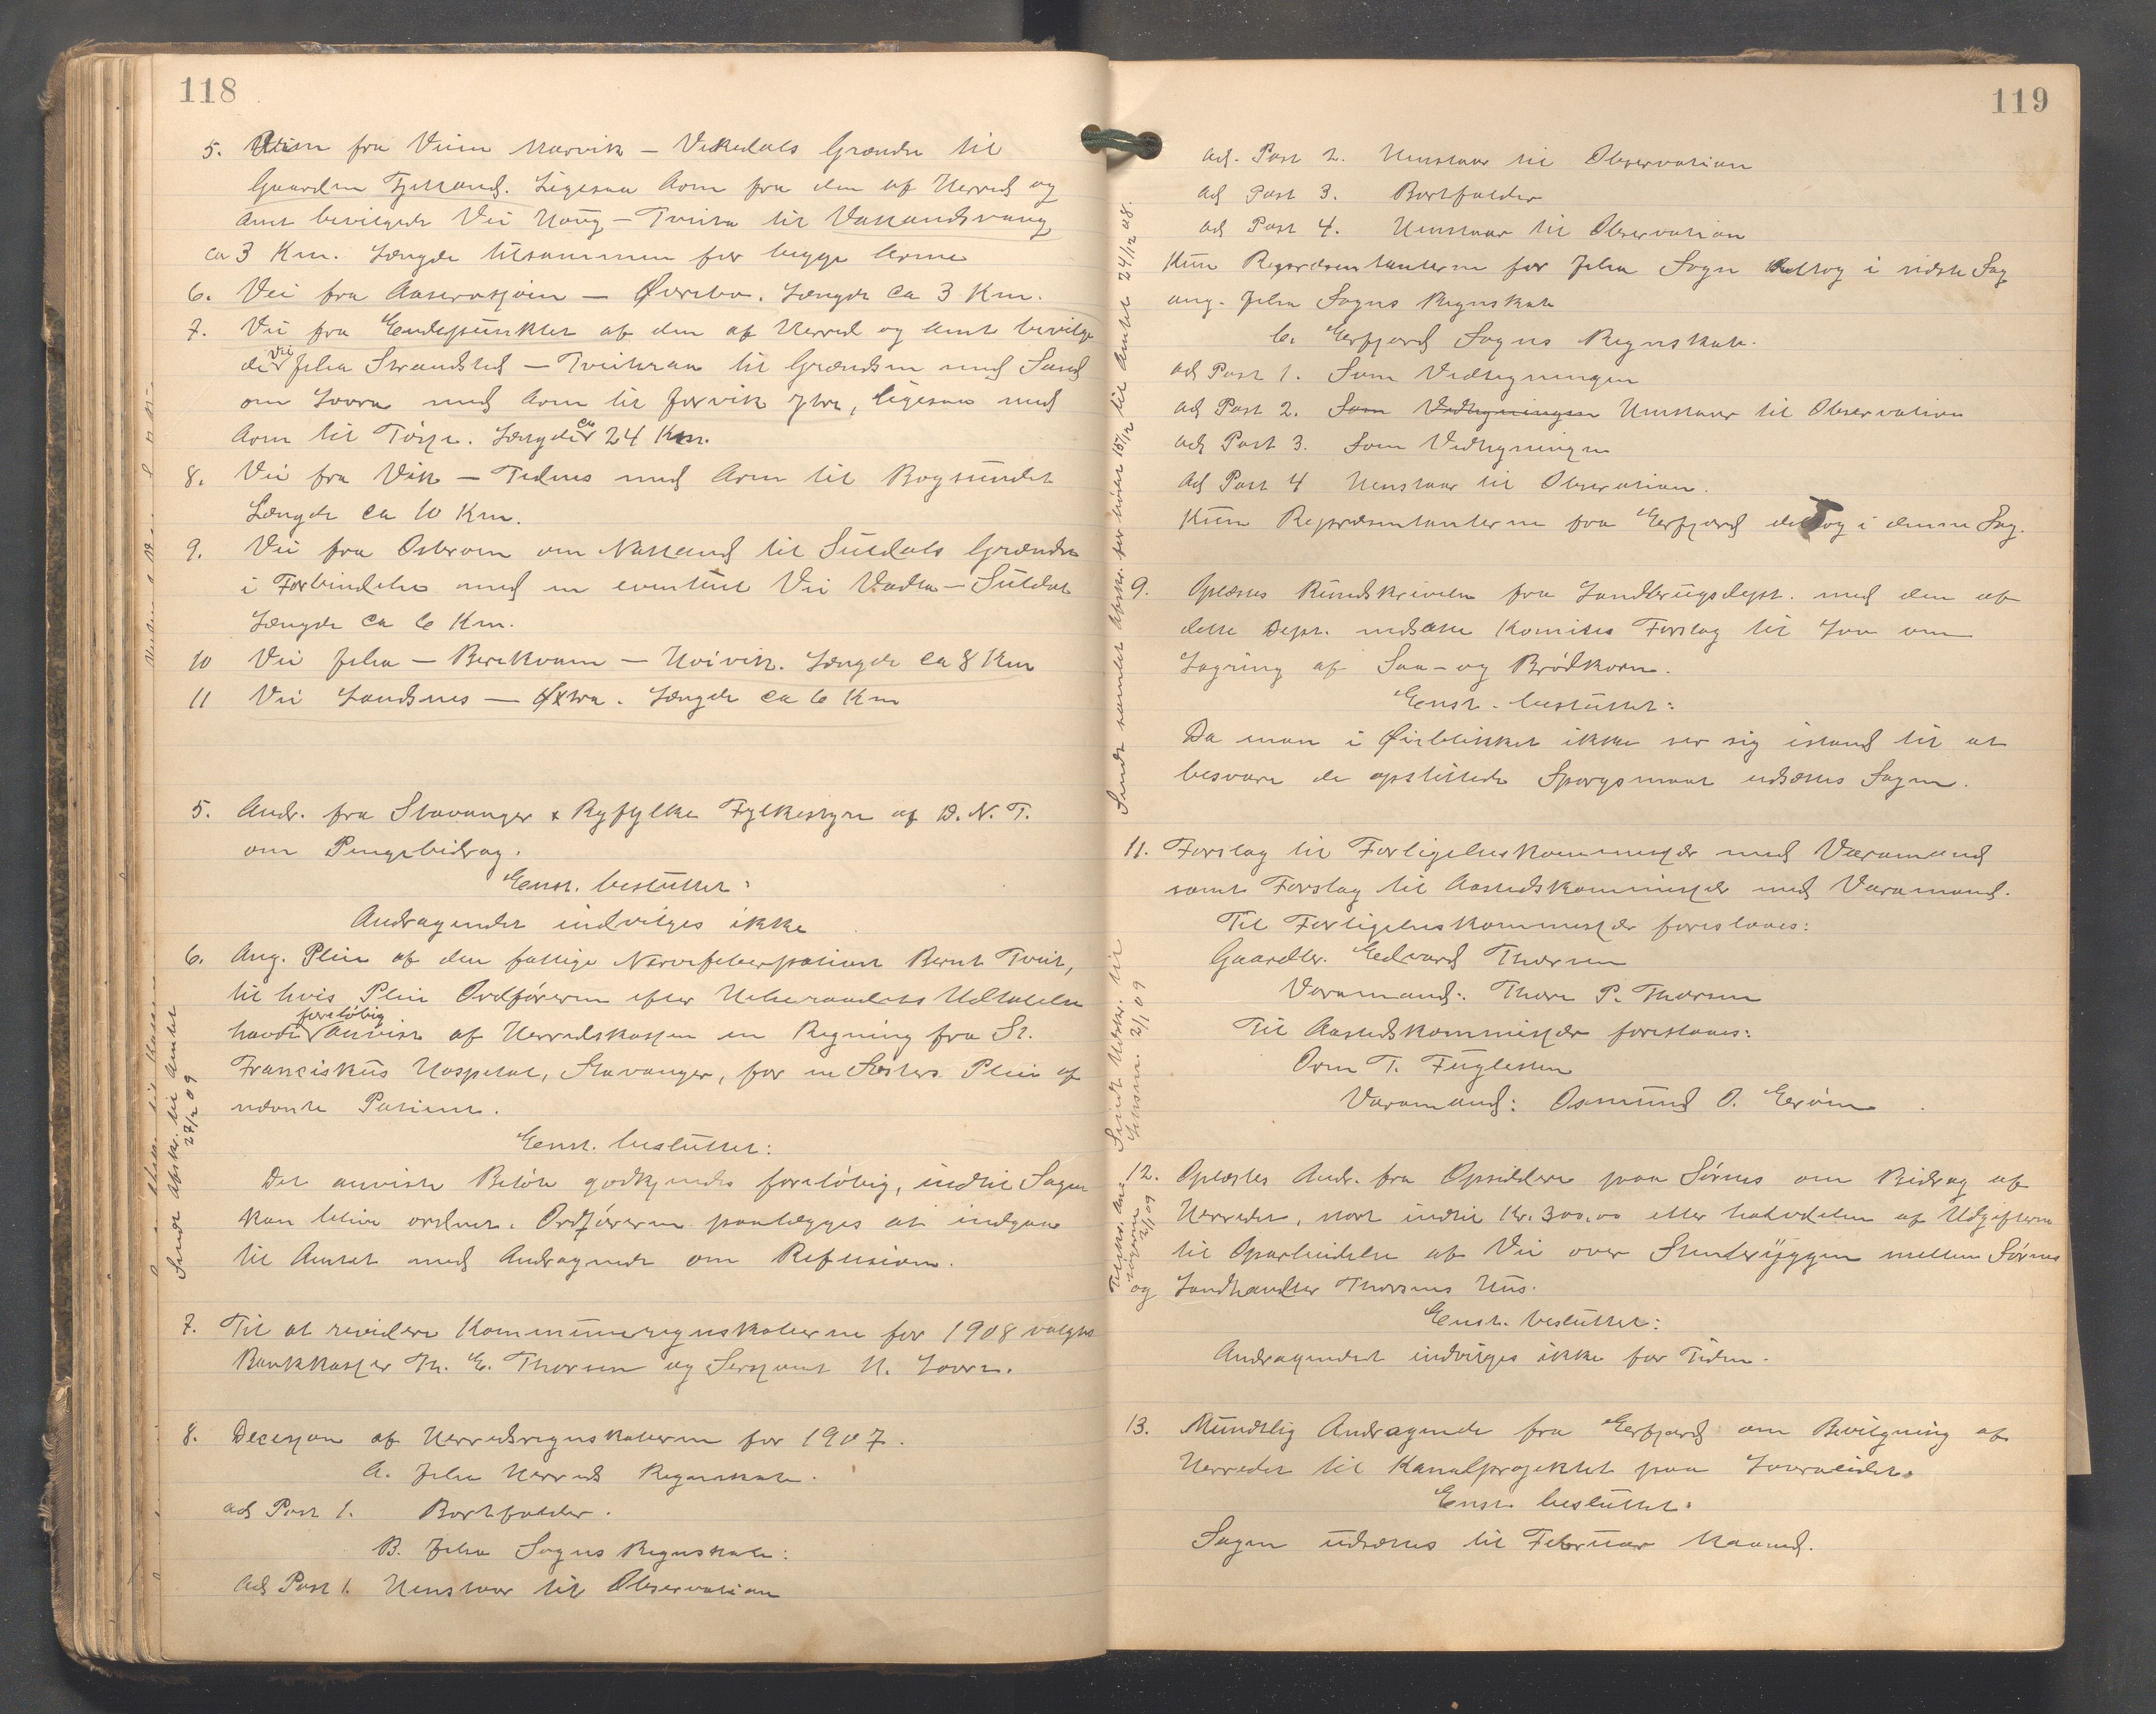 118
5. Arm fra Veien Marvik – Vikedals Grændse til
Gaarden Tjelland. Ligesaa Arm fra den af Herred og
Amt bevilgede Vei Haug – Tveita til Vasandsvaag
ca 3 Km. Længde tilsammen for begge Arme
6. Vei fra Aaservasjøen – Øvrebø. Længde ca 3 Km.
7. Vei fra Endepunktet af den af Herred og Amt bevilge
de Vei Jelsa Strandsted – Tveitraa til Grændsen med Sand
om Lovra med Arm til Jørvik ytre, ligesaa med
Arm til Tøsse. Længde ca 24 Km.
8. Vei fra Vik – Tednes med Arm til Bogsundet
Længde ca 10 Km.
9. Vei fra Østerøen om Nasland til Suldals Grændse
i Forbindelse med en eventuel Vei Vadla – Suldal
Længde ca 6 Km.
10 Vei Jelsa – Berekvam – Hoivik. Længde ca 8 Km
11 Vei Landsnes – Økstra. Længde ca 6 Km
5. Andr. fra Stavanger & Ryfylke Fylkesstyre af D. N. T.
om Pengebidrag.
Enst. besluttet:
Andragendet indvilges ikke
6. Ang. Pleie af den fattige Nervefeberpatient Bernt Tveit,
til hvis Pleie Ordføreren efter Helseraadets Udtalelse
havde foreløbig anvist af Herredskassen en Regning fra St.
Franciskus Hospital, Stavanger, for en Søsters Pleie af
nævnte Patient.
Enst. besluttet:
Det anviste Beløb godkjendes foreløbig, indtil Sagen
kan blive ordnet. Ordføreren paalægges at indgaa
til Amtet med Andragende om Refusion.
Sendt Afskr. til Amtet
27/12 09
7. Til at revidere Kommuneregnskaberne for 1908 valgtes
Bankkasser Th. E. Thorsen og Sersjant H. Lovra.
8. Decision af Herredsregnskaberne for 1907.
A. Jelsa Herreds Regnskab.
ad Post 1. Bortfalder.
B. Jelsa Sogns Regnskab:
Ad Post 1. Henstaar til Observation
119
ad. Post 2. Henstaar til Observation
ad Post 3. Bortfalder
ad Post 4. Henstaar til Observation
Kun Repræsentanterne for Jelsa Sogn deltog i sidste Sag
ang. Jelsa Sogns Regnskab
C. Erfjord Sogns Regnskab.
ad Post 1. Som Vedtegningen
ad Post 2. Som Vedtegningen Henstaar til Observation
ad Post 3. Som Vedtegningen
Ad Post 4 Henstaar til Observation.
Kun Repræsentanterne fra Erfjord deltog i denne Sag.
9. Oplæstes Rundskrivelse fra Landbrugsdept. med den af
dette Dept. nedsatte Komites Forslag til Lov om
Lagring af Saa- og Brødkorn.
Enst. besluttet:
Da man i Øieblikket ikke ser sig istand til at
besvare de opstillede Spørgsmaal udsættes Sagen.
11. Forslag til Forligelseskommissær med Varamand
samt Forslag til Aastedskommissær med Varamand.
Til Forligelseskommissær foreslaaes:
Gaardbr. Edvard Thorsen
Varamand: Thore P. Thorsen
Til Aastedskommissær foreslaaes:
Orm T. Fuglesten
Varamand: Osmund O. Erøen
12. Oplæstes Andr. fra Opsiddere paa Sørnes om Bidrag af
Herredet, stort indtil Kr. 300,00 eller halvdelen af Udgifterne
til Oparbeidelse af Vei over Stenteryggen mellem Sørnes
og Landhandler Thorsens Hus.
Enst. besluttet:
Andragendet indvilges ikke for Tiden.
13. Mundtlig Andragende fra Erfjord om Bevilgning af
Herredet til Kanalprojektet paa Lovraeidet.
Enst. besluttet:
Sagen udsættes til Februar Maaned.
Sendt samlet Afskr. 15/12 til Amtet 24/12 08.
Sendt Udskr. til
2/1 09
2/1 09